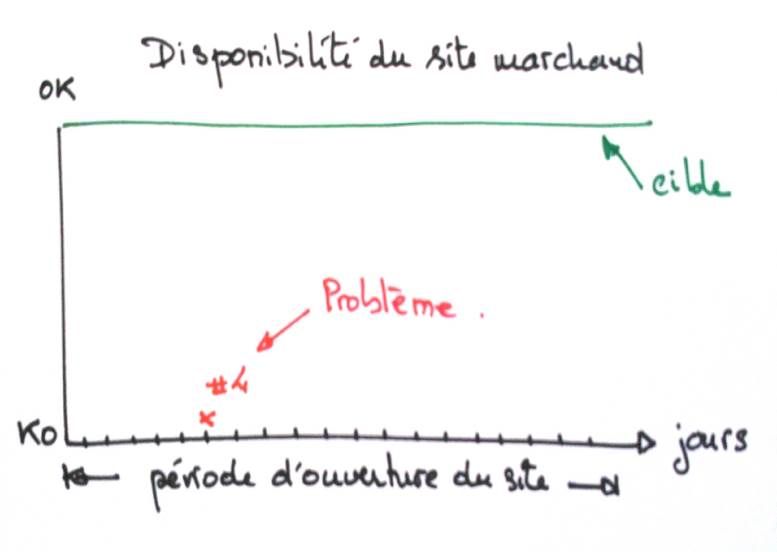 Disponibilité du site marchand
OK
cible
Problème.
#4
x
KO
jours
période d'ouverture du site